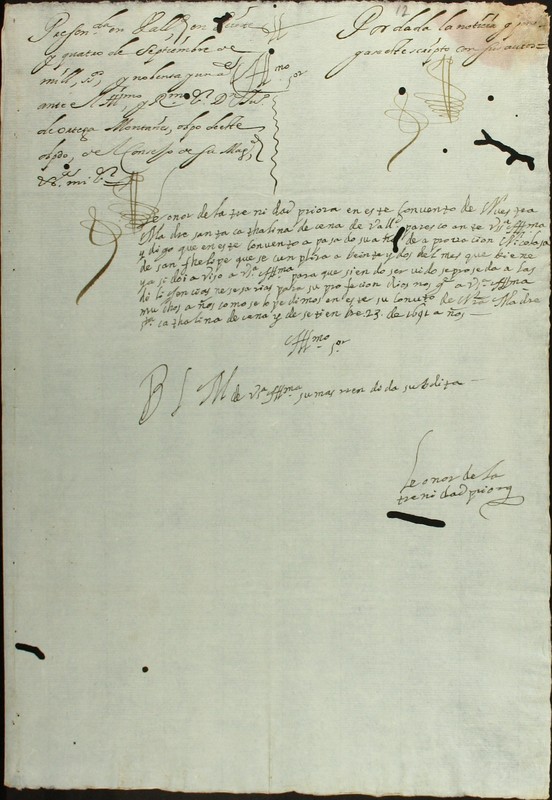 12
Presen.da en Vall.d en veinte
y quatro de Septiembre de
mill, y nobenta y un a.s
ante Ill.mo y R.mo S.r D.r
de ortega Montañes, obpo deste
obpdo, del Consejo de Su Mag.d
mi S.r
Por dada la noticia y
gase este scripto con
Ill.mo S.or
leonor de la tre ni dad priora en este convento de Nuestra
Ma dre santa ca thalina de cena de Vall.d paresco an te V.sa Ill.ma
y digo que en este convento a pa sado su año de a pro vacion Nicolasa
de san phelipe que se cun plira a beinte y dos del mes que biene
ya si doi a viso a V.sa Ill.ma para que sien do ser vido se proseda a las
di li gencias ne se sarias para su pro fecion Dios nos g.e a V.sa Ill.ma
mu chos a ños como se lo pe dimos en este su convto de N.tra Ma dre
s.ta ca thalina de cena y de se tien bre 23 de 1691 a ños
Ill.mo
S.or
B L M de V.sa Ill.ma su mas ren di da su bdita
leonor de la
tre ni dad priora